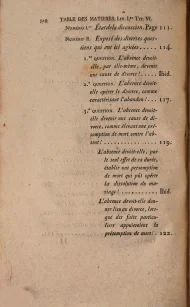 TABLE DES MATIERES, LIV. Iᵉʳ TIT. VI.
NUMÉRO I.ᵉʳ État de la discussion. Page 111.
NUMÉRO II. Exposé des diverses questions
tions qui ont été agitées..... 114.
1.ʳᵉ QUESTION. L'absence devait-
elle, par elle-même, devenir
une cause de divorce?..... Ibid.
2.ᵉ QUESTION. L'absence devait-
elle opérer le divorce, comme
caractérisant l'abandon?... 117.
3.ᵉ QUESTION. L'absence devait-
elle donner une cause de di-
vorce, comme élevant une pré-
somption de mort contre l'ab-
sent?..... 119.
L'absence devait-elle, par
le seul effet de sa durée,
établir une présomption
de mort qui pût opérer
la dissolution du ma-
riage?..... Ibid.
L'absence devait-elle don-
ner lieu au divorce, lors-
que des faits particu-
liers appuieraient la
présomption de mort?. 122.